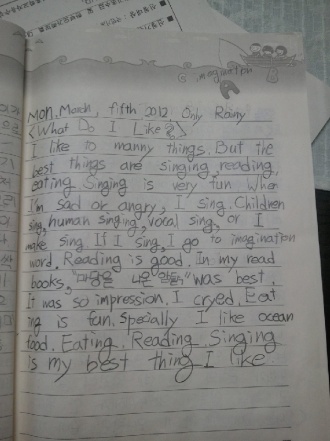 imagination
Mon. March, fifth 2012 Only Rainy
<What Do I Like?>
I like to manny things. But the
best things are singing, reading,
eating. Singing is very fun. When
I'm sad or angry, I sing. Children
sing, human singing, vocal sing, or I
make sing. If I sing, I go to imagination
word. Reading is good. In my read
books, "마당을 나온 암탉" was best.
It was so impression. I cryed. Eat
ing is fun. Specially I like ocean
food. Eating. Reading. Singing
is my best thing I like.